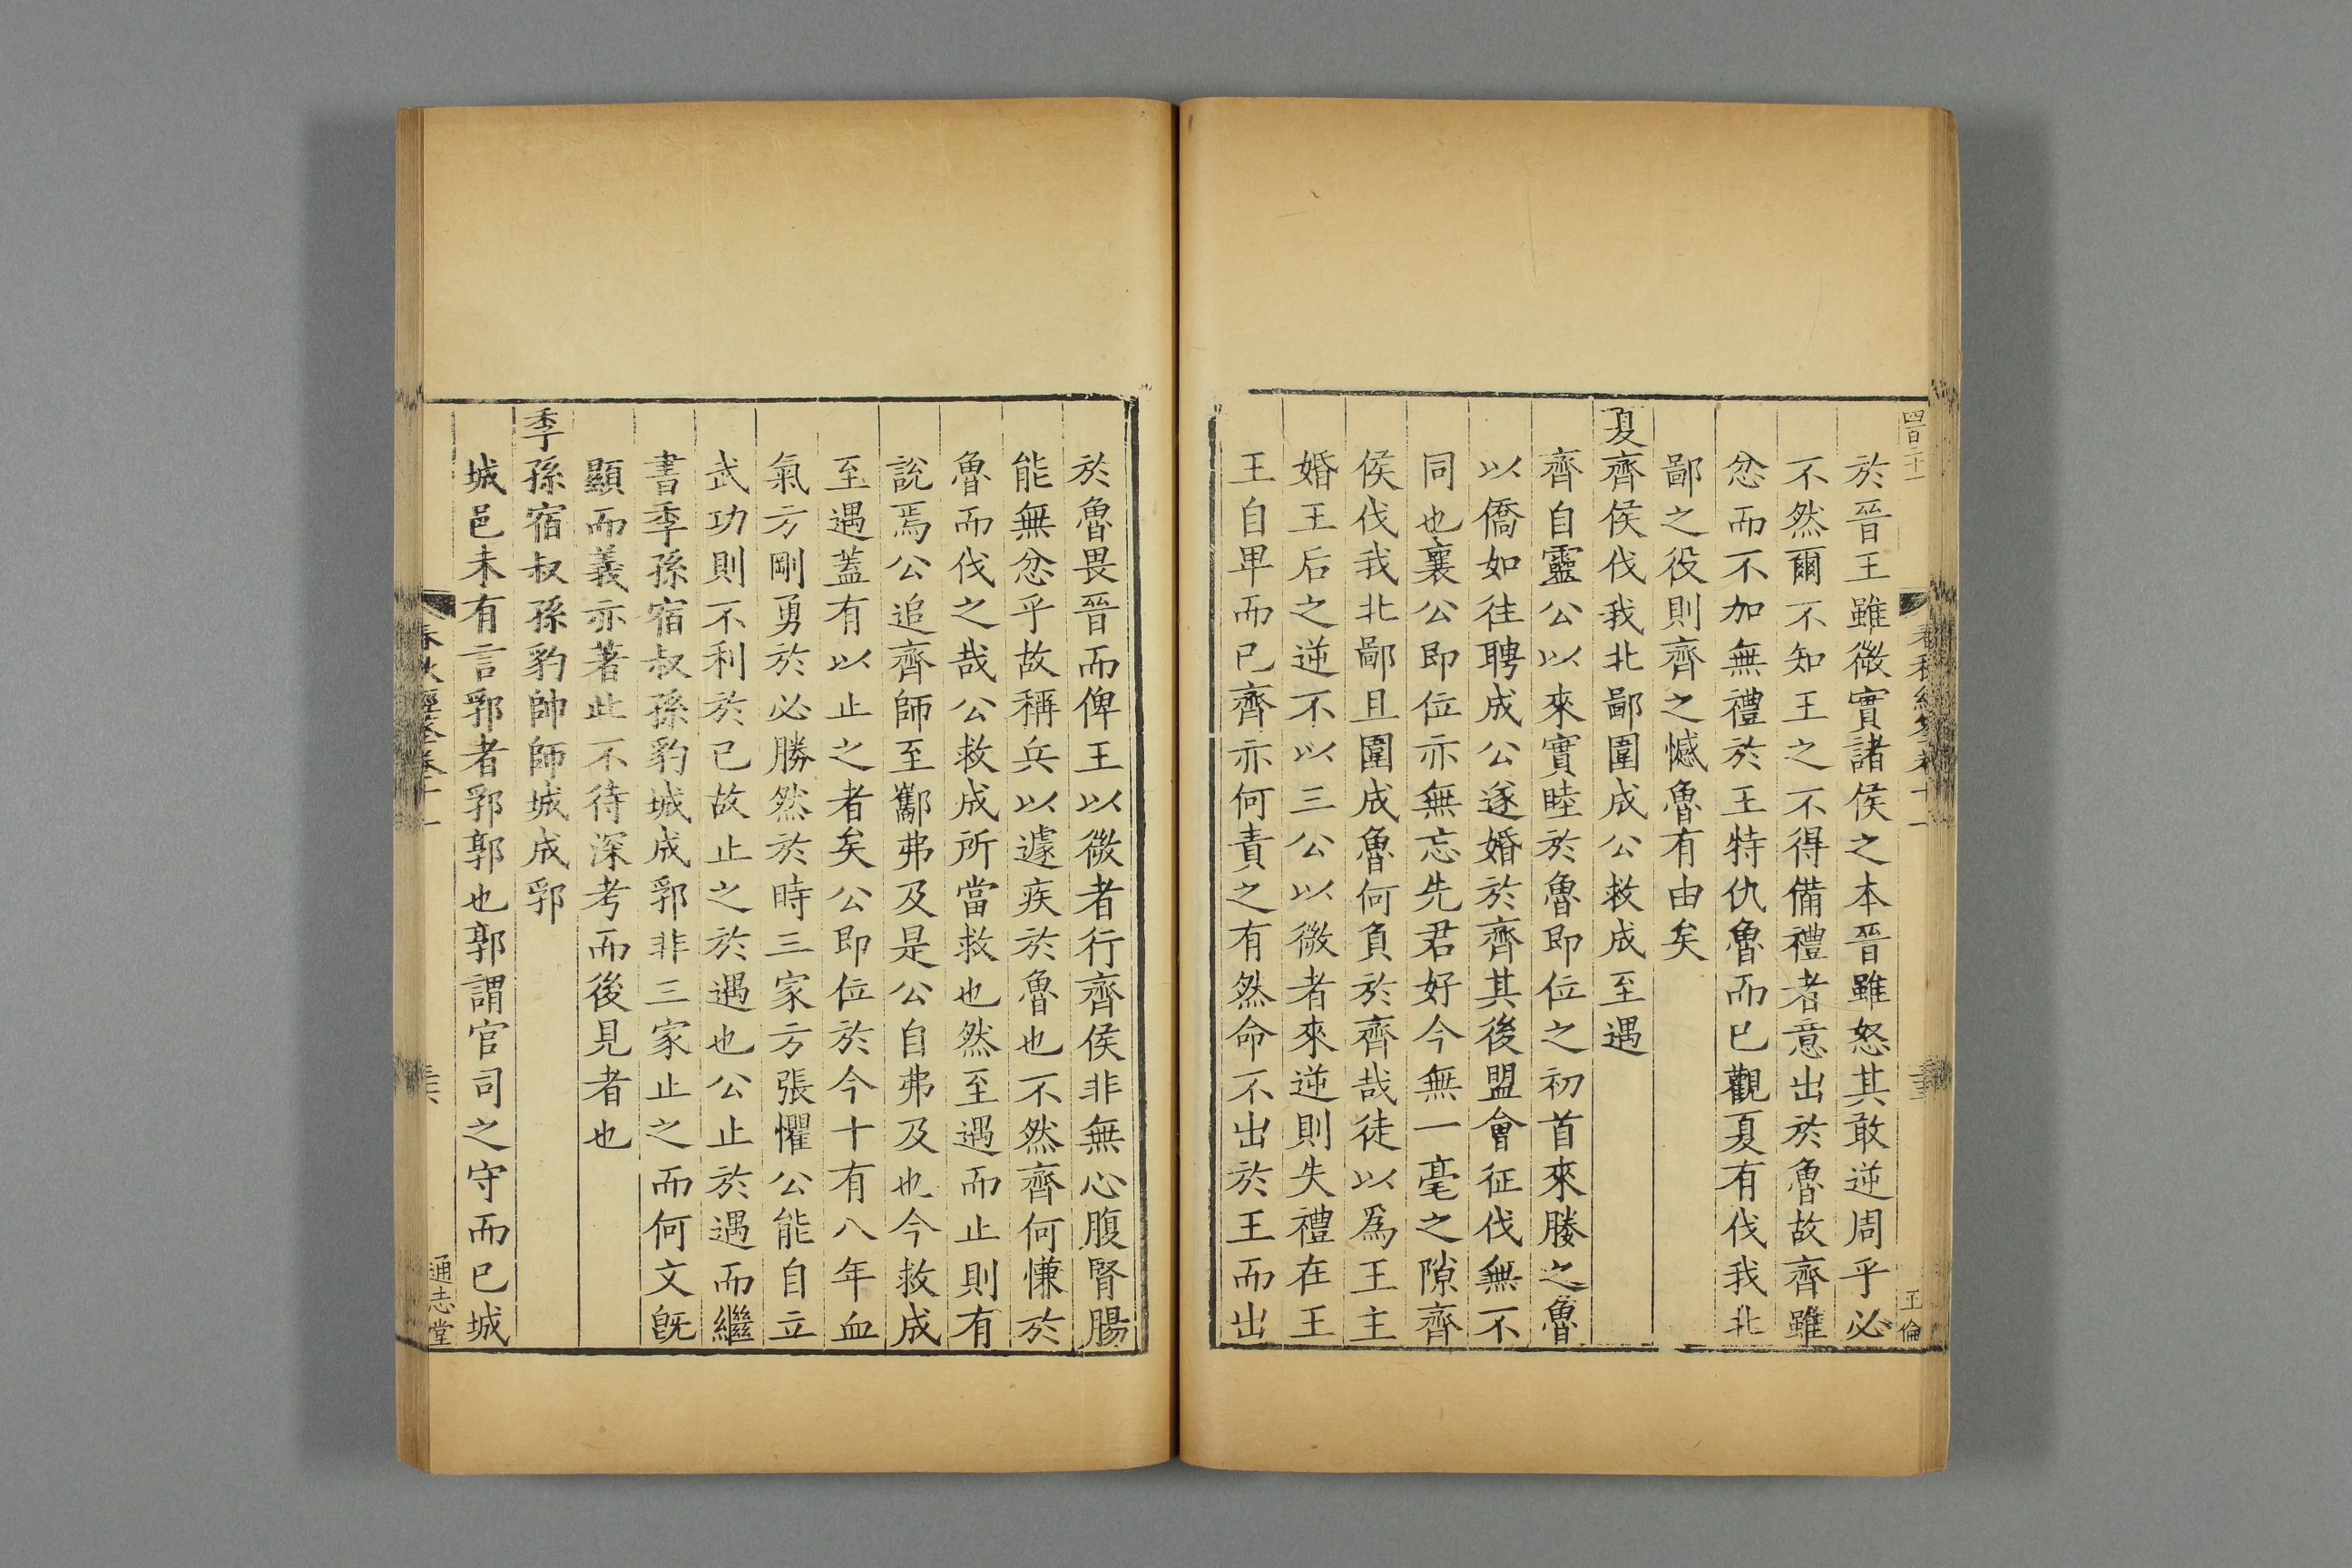 於晉王雖微實諸侯之本晉雖怒其敢逆周乎必
不然爾不知王之不得備禮者意出於魯故齊雖
忿而不加無禮於王特仇魯而已觀夏有伐我北
鄙之役則齊之憾魯有由矣
夏齊侯伐我北鄙圍成公救成至遇
齊自靈公以來實睦於魯即位之初首來媵之魯
以僑如往聘成公遂婚於齊其後盟會征伐無不
同也襄公即位亦無忘先君好今無一毫之隙齊
侯伐我北鄙且圍成魯何負於齊哉徒以爲王主
婚王后之逆不以三公以微者來逆則失禮在王
王自卑而已齊亦何責之有然命不出於王而出
於魯畏晉而俾王以微者行齊侯非無心腹腎腸
能無忿乎故稱兵以遽疾於魯也不然齊何慊於
魯而伐之哉公救成所當救也然至遇而止則有
說焉公追齊師至酅弗及是公自弗及也今救成
至遇蓋有以止之者矣公即位於今十有八年血
氣方剛勇於必勝然於時三家方張懼公能自立
武功則不利於已故止之於遇也公止於遇而繼
書季孫宿叔孫豹城成郛非三家止之而何文旣
顯而義亦著此不待深考而後見者也
季孫宿叔孫豹帥師城成郛
城邑未有言郛者郛郭也郭謂官司之守而已城
通志堂
王倫